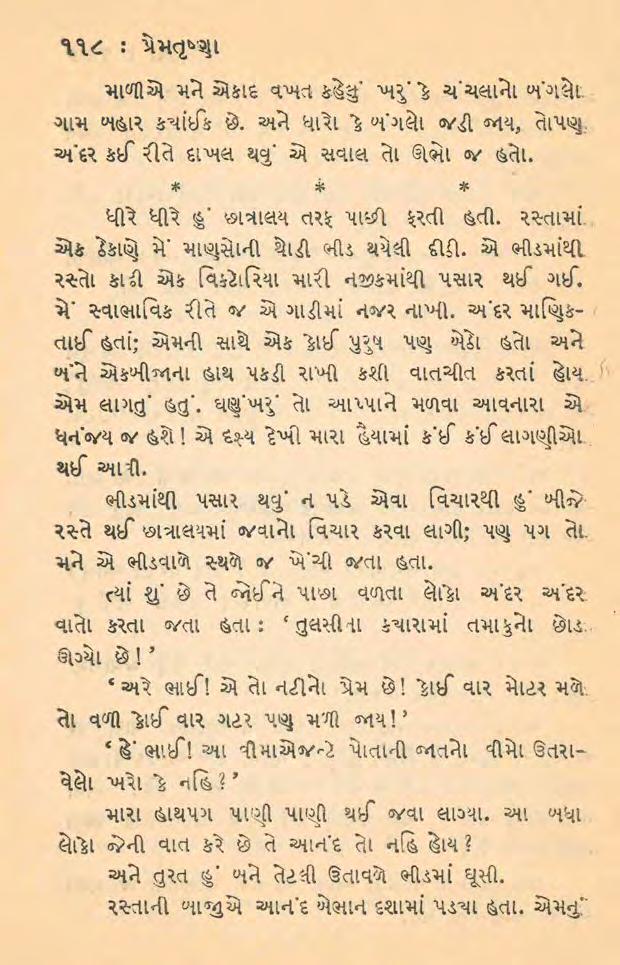 ૧૧૮ : પ્રેમતૃષ્ણા
માળીએ મને એકાદ વખત કહેલું ખરું કે ચંચલાનો બંગલો
ગામ બહાર કયાંઈક છે. અને ધારો કે બંગલો જડી જાય, તોપણ
અંદર કઈ રીતે દાખલ થવું એ સવાલ તો ઊભો જ હતો.
* * *
ધીરે ધીરે હું છાત્રાલય તરફ પાછી ફરતી હતી. રસ્તામાં
એક ઠેકાણે મેં માણસોની થોડી ભીડ થયેલી દીઠી. એ ભીડમાંથી
રસ્તો કાઢી એક વિક્ટોરિયા મારી નજીકમાંથી પસાર થઈ ગઈ.
મેં સ્વાભાવિક રીતે જ એ ગાડીમાં નજર નાખી. અંદર માણિક-
તાઈ હતાં; એમની સાથે એક કોઈ પુરુષ પણ બેઠો હતો અને
બંને એકબીજાના હાથ પકડી રાખી કશી વાતચીત કરતાં હોય
એમ લાગતું હતું. ઘણુંખરું તો આપ્પાને મળવા આવનારા એ
ધનંજય જ હશે! એ દૃશ્ય દેખી મારા હૈયામાં કંઈ કંઈ લાગણીઓ
થઈ આવી.
ભીડમાંથી પસાર થવું ન પડે એવા વિચારથી હું બીજે
રસ્તે થઈ છાત્રાલયમાં જવાનો વિચાર કરવા લાગી; પણ પગ તો
મને એ ભીડવાળે સ્થળે જ ખેંચી જતા હતા.
ત્યાં શું છે તે જોઈને પાછા વળતા લોકો અંદર અંદર
વાતો કરતા જતા હતા : ‘તુલસીના કયારામાં તમાકુનો છોડ
ઊગ્યો છે!’
‘અરે ભાઈ! એ તો નટીનો પ્રેમ છે! કોઈ વાર મોટર મળે
તો વળી કોઈ વાર ગટર પણ મળી જાય!’
‘હેં ભાઈ! આ વીમાએજન્ટે પોતાની જાતનો વીમો ઉતરા-
વેલો ખરો કે નહિ?’
મારા હાથપગ પાણી પાણી થઈ જવા લાગ્યા. આ બધા
લોકો જેની વાત કરે છે તે આનંદ તો નહિ હોય?
અને તુરત હું બને તેટલી ઉતાવળે ભીડમાં ઘૂસી.
રસ્તાની બાજુએ આનંદ બેભાન દશામાં પડયા હતા. એમનું